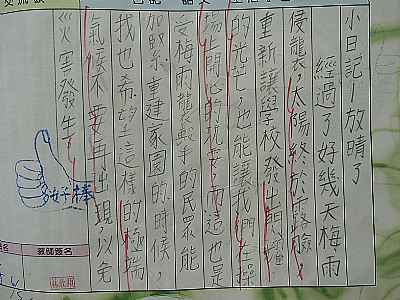 小日記—放晴了
經過了好幾天梅雨
侵襲，太陽終於露臉，
重新讓學校發出閃耀
的光芒，也能讓我們在操
場上開心的玩耍，而這也是
受梅雨襲擊的民眾能
加緊重建家園的時候，
我也希望這樣的極端
氣候不要再出現，以免
災害發生。
你好棒
教師簽名